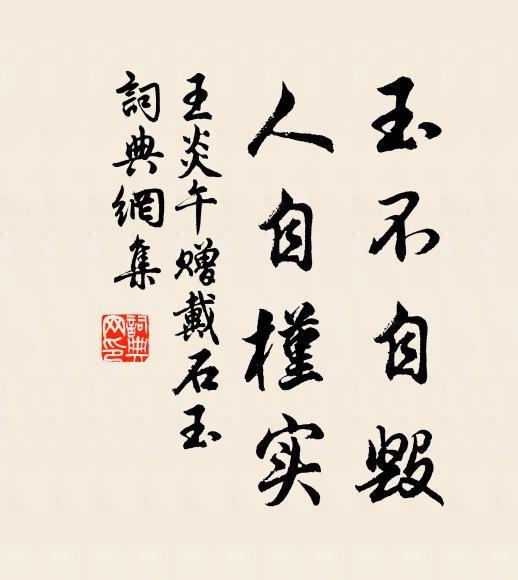 玉不自毁
人自槿实
王炎午赠戴石玉
詞典網集
詞典网印